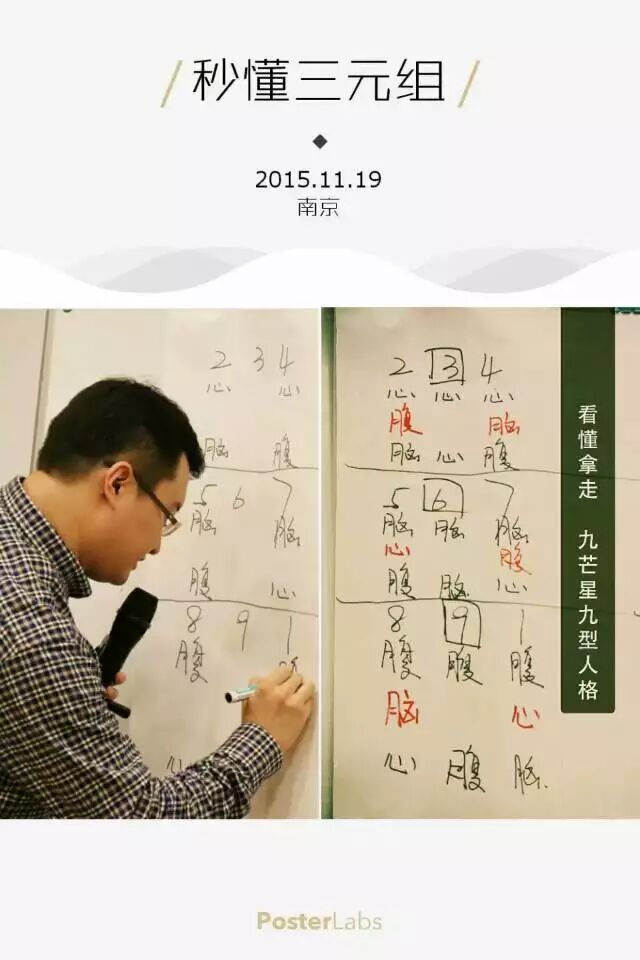 秒懂三元组
2015.11.19
南京
2 3 4
心 心
脑 腹
5 6 7
脑 脑
腹 心
8 9 1
腹
心
2 3 4
心 心 心
腹 脑
脑 心 腹
5 6 7
脑 脑 脑
心 腹
腹 脑 心
8 9 1
腹 腹 腹
脑 心
心 腹 脑
看懂拿走 九芒星九型人格
PosterLabs